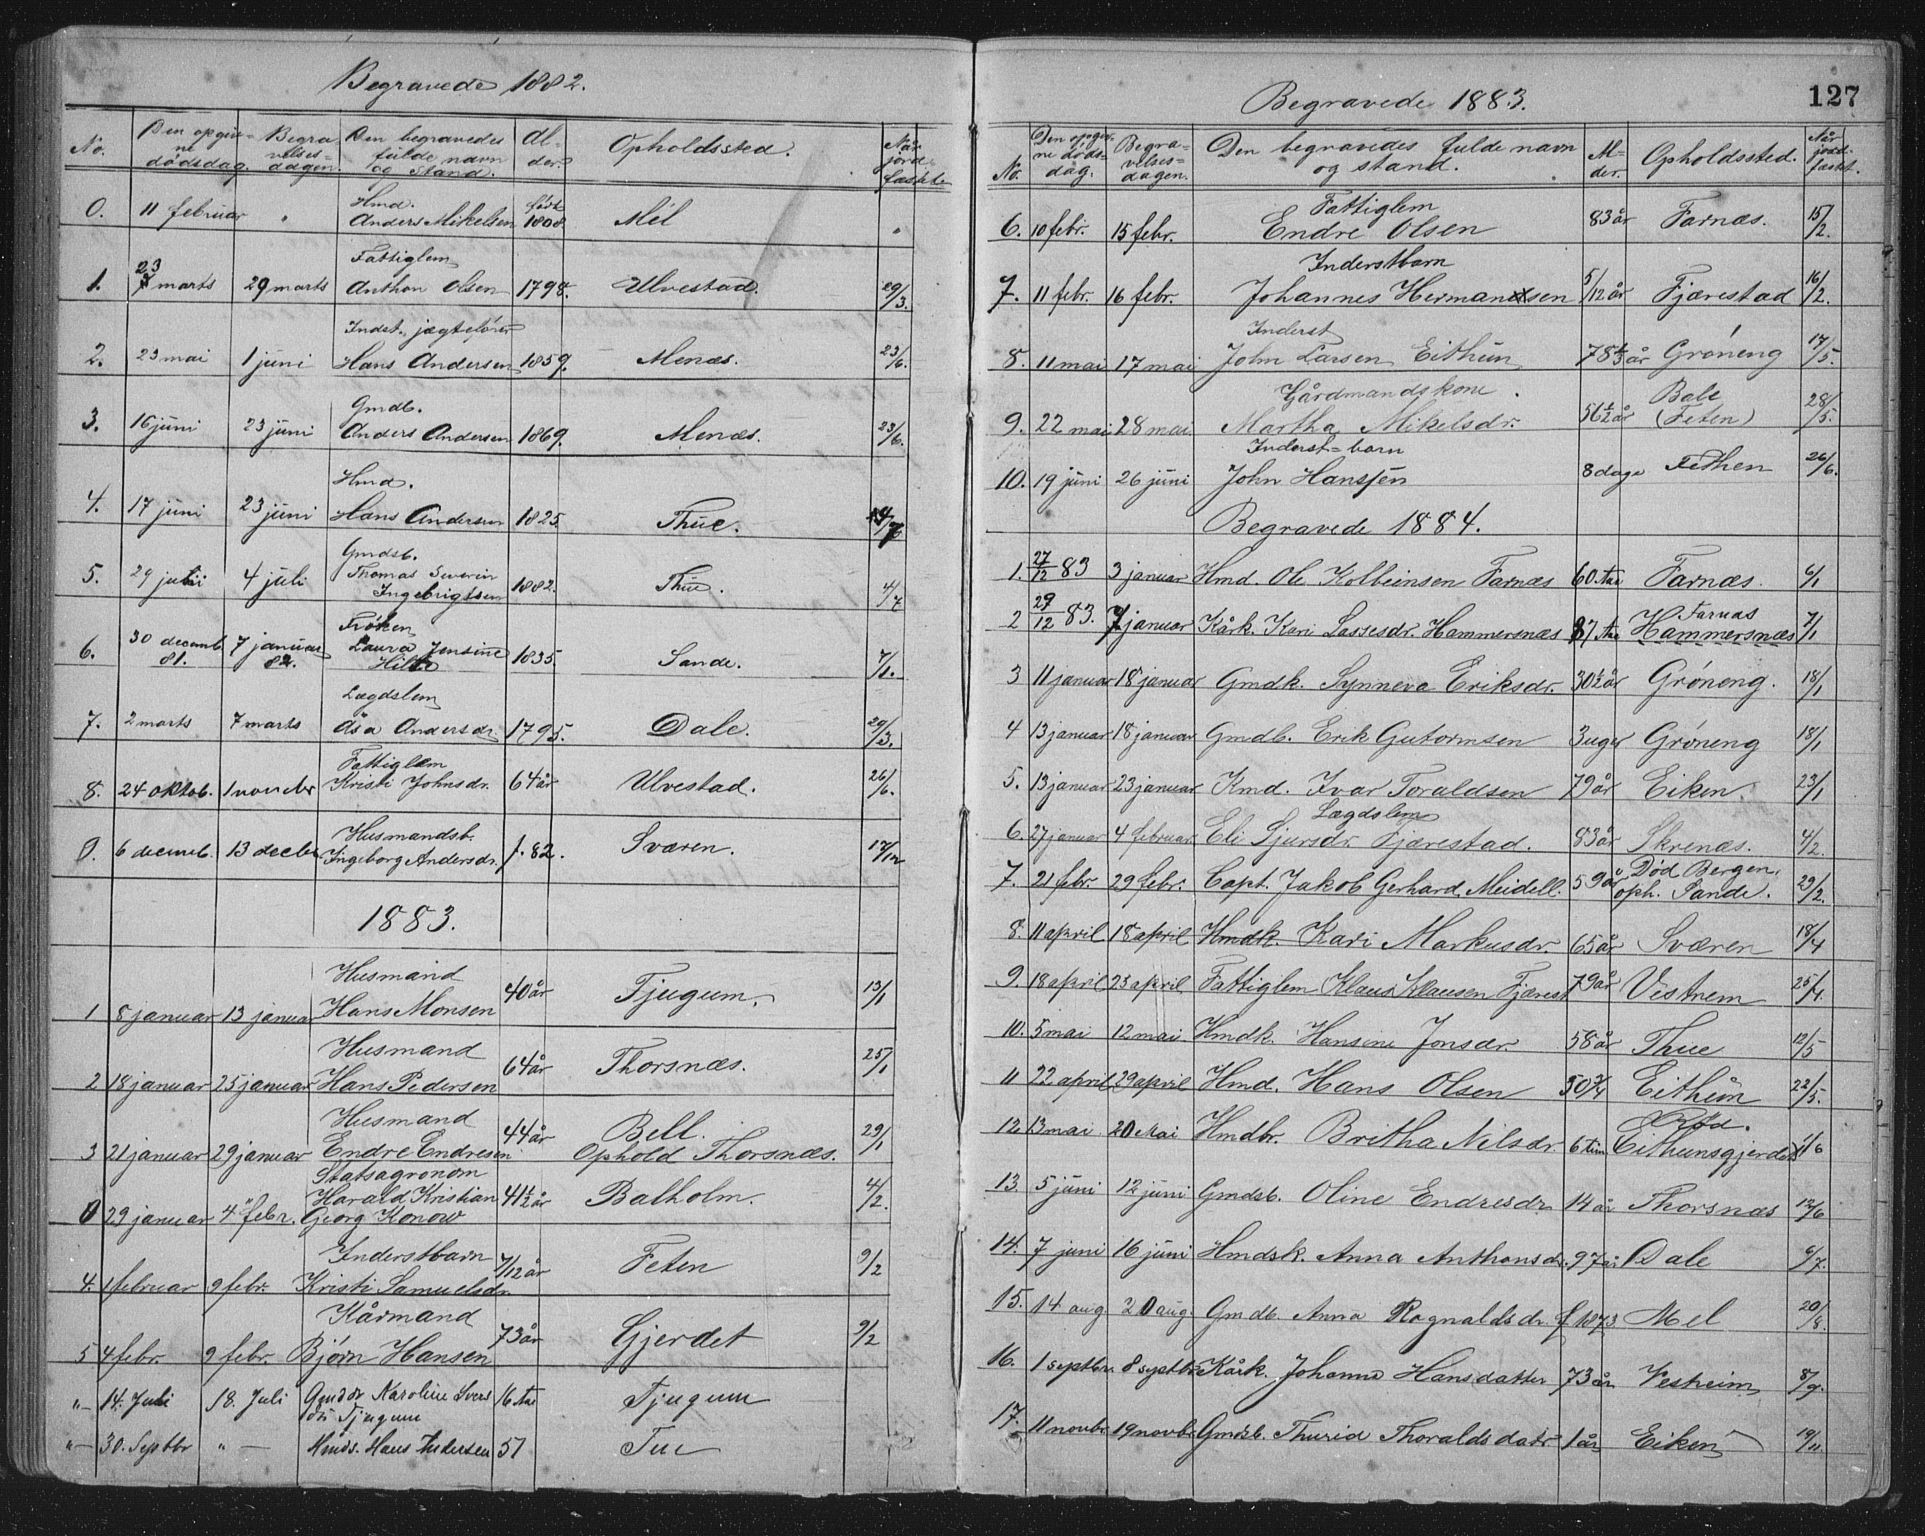 Begravede 1882.
No. Den opgivne dödsdag. Begravelsesdagen. Den begravedes fulde navn og stand. Alder. Opholdssted. Når jordfæstet
0. 11 februar " Hmd. Anders Mikelsen født 1808. Mel "
1. 23 marts 29 marts Fattiglem Anthon Olsen 1798. Ulvestad. 29/3.
2. 23 mai 1 juni Indst. jægtefører Hans Andersen 1859. Menæs. 23/6.
3. 16 juni 23 juni Gmdb. Anders Andersen 1869. Menæs. 23/6.
4. 17 juni 23 juni Hmd. Hans Andersen 1825. Thue.
5. 29 juni 4 juli Gmdsb. Thomas Severin Ingebrigtsen 1882. Thue. 4/7
6. 30 decemb 81. 7 januar 82. Frøken Laura Jensine Hilte 1835. Sande. 7/1.
7. 2 marts 7 marts Lægdslem Åsa Andersdr. 1795. Dale. 29/3.
8. 24 oktob. 1 novmbr Fattiglem Kristi Johnsdr. 64 år Ulvestad. 26/6.
0. 6 decemb. 13 decbr Husmandsb. Ingeborg Andersdr. f. 82. Sværen. 17/12
1883.
1 8 januar 13 januar Husmand Hans Monsen 40 år Tjugum. 13/1
2 18 januar 25 januar Husmand Hans Pedersen 64 år Thorsnæs. 25/1
3 21 januar 29 januar Husmand Endre Endresen 44 år Bell. Ophold Thorsnæs. 29/1
0 29 januar 4 febr. Statsagronom Harald Kristian Georg Konow 41 1/2 år Balholm. 4/2.
4. 1 februar 9 febr. Inderstbarn Kristi Samuelsdr. 7/12 år Feten 9/2
5 4 febr. 9 febr. Kårmand Bjørn Hansen 73 år Gjerdet 9/2
"- 14. Juli 18. Juli Gmddr Karoline Iversdtr Tjugum 16 Aar Tjugum
"- 30. Septbr "- Hmds. Hans Andersen 57 Tue
Begravede 1883.
127
No. Den opgivne dødsdag. Begravelsesdagen. Den begravedes fulde navn og stand. Alder. Opholdssted. Når jordfæstet.
6. 10 febr. 15 febr. Fattiglem Endre Olsen 83 år Farnæs. 15/2.
7. 11 febr. 16 febr. Inderstbarn Johannes Hermansen 5/12 år Fjærestad 16/2.
8. 11 mai 17 mai Inderst John Larsen Eithun 78 år Grøneng 17/5.
9. 22 mai 28 mai Gårdmandskone Martha Mikelsdr. 56 1/2 år Bale (Feten) 28/5.
10. 19 juni 26 juni Inderst-barn John Hansen 8 dage Fethen 26/6.
Begravede 1884.
1. 27/12 83 3 januar Hmd. Ole Kolbeinsen Farnæs 60 Aar Farnæs. 6/1
2 29/12 83. 7 januar Kårk. Kari Lassesdr. Hammersnæs 87 Aar Farnæs Hammersnæs 7/1
3 11 januar 18 januar Gmdk. Synneva Eriksdr. 30 1/2 år Grøneng. 18/1
4 13 januar 18 januar Gmdb. Erik Gutormsen 3 uger Grøneng 18/1
5. 13 januar 23 januar Kmd. Ivar Toraldsen 79 år Eiken. 23/1
6. 27 januar 4 februar Lægdslem Eli Sjursdr. Fjærestad. 83 år Skrenæs. 4/2.
7. 21 febr. 29 febr. Capt. Jakob Gerhard Meidell. 59 år Død Bergen. oph. Sande. 29/2.
8. 11 april 18 april Hmdk. Kari Markusdr. 65 år Sværen 18/4
9. 18 april 25 april Fattiglem Klaus Klausen Fjærest 79 år Vestrem 25/4.
10. 5 mai 12 mai Hmdk. Hansine Jonsdr. 58 år Thue 12/5
11 22 april 29 april Hmd. Hans Olsen 50 3/4 Eithun 22/5.
12. 13 mai 20 Mai Hmdbr. Britha Nilsdr. 6 tim Eithunsgjerdet
13. 5 juni 12 juni Gmdsb. Oline Endresdr 14 år Thorsnæs 12/6
14. 7 juni 16 juni Hmdsk. Anna Anthonsdr. 97 år Dale 6/7.
15. 14 aug 20 aug. Gmdb. Anna Ragnaldsdr. f 1873 Mel 20/8.
16. 1 septbr. 8 septbr Kårk. Johanna Hansdatter 73 år Vesheim 8/9.
17. 11 novbr. 19 novbr. Gmdsb. Thurid Thoraldsdatr 1 år Eiken 19/11